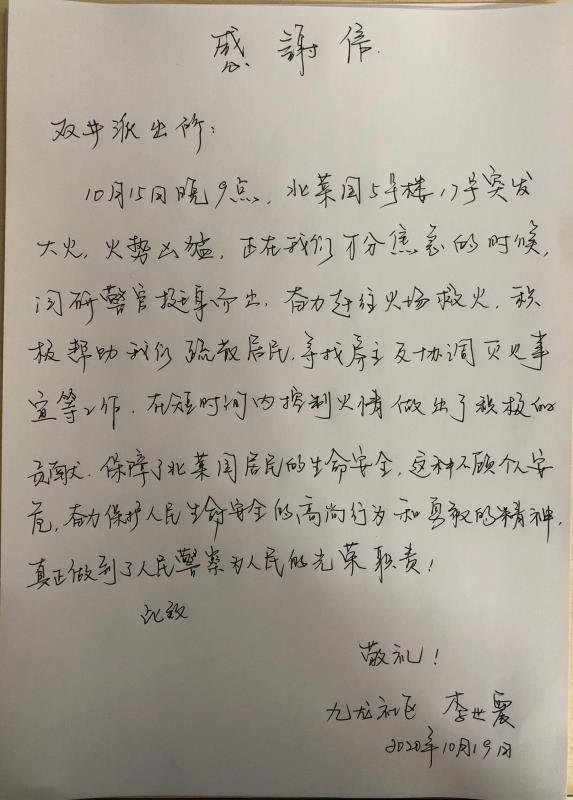 感謝信
双井派出所:
10月15日晚9点,北菜园5号楼17号突发
大火,火势凶猛,正在我们万分焦急的时候,
闫研警官挺身而出,奋力赶往火场救火,积
极帮助我们疏散居民,寻找房主及协调灭火事
宜等工作,在短时间内控制火情做出了积极的
贡献.保障了北菜园居民的生命安全,这种不顾个人安
危,奋力保护人民生命安全的高尚行为和勇敢的精神,
真正做到了人民警察为人民的光荣职责!
此致
敬礼!
九龙社区 李世震
2020年10月19日